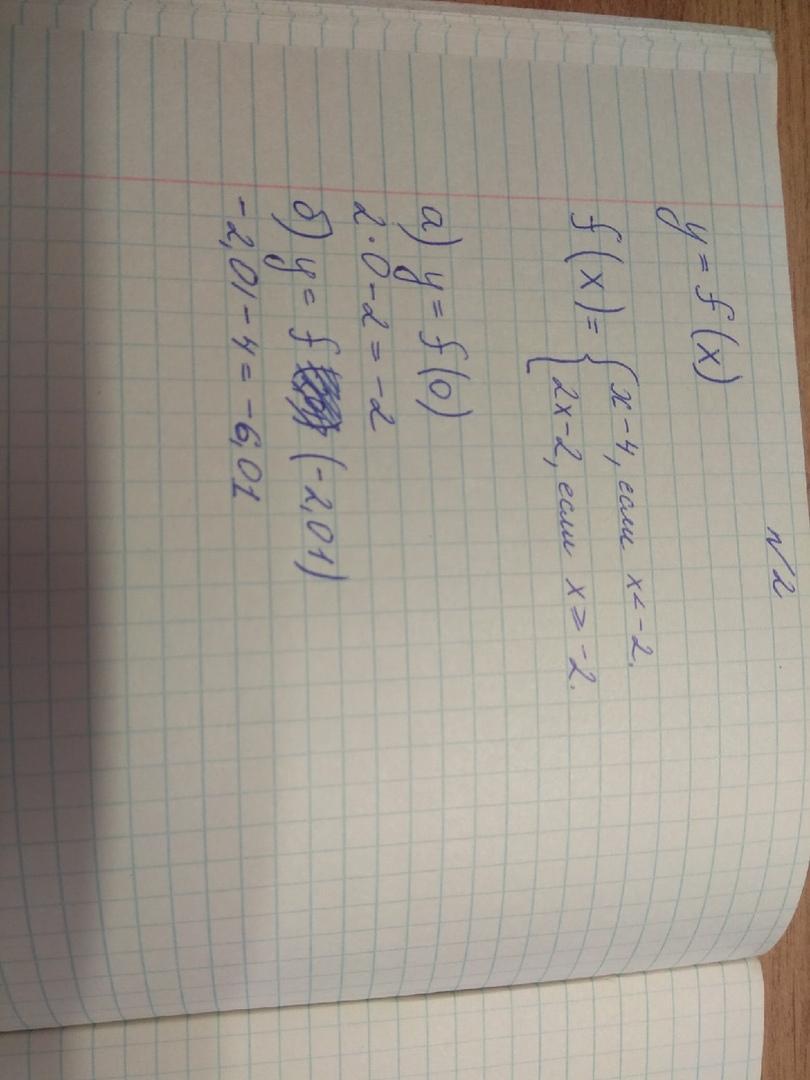 №2
y = f(x)
f(x) = { x-4, если x < -2.
2x-2, если x ⩾ -2.
а) y = f(0)
2·0-2 = -2
б) y = f (-2,01)
-2,01 - 4 = -6,01